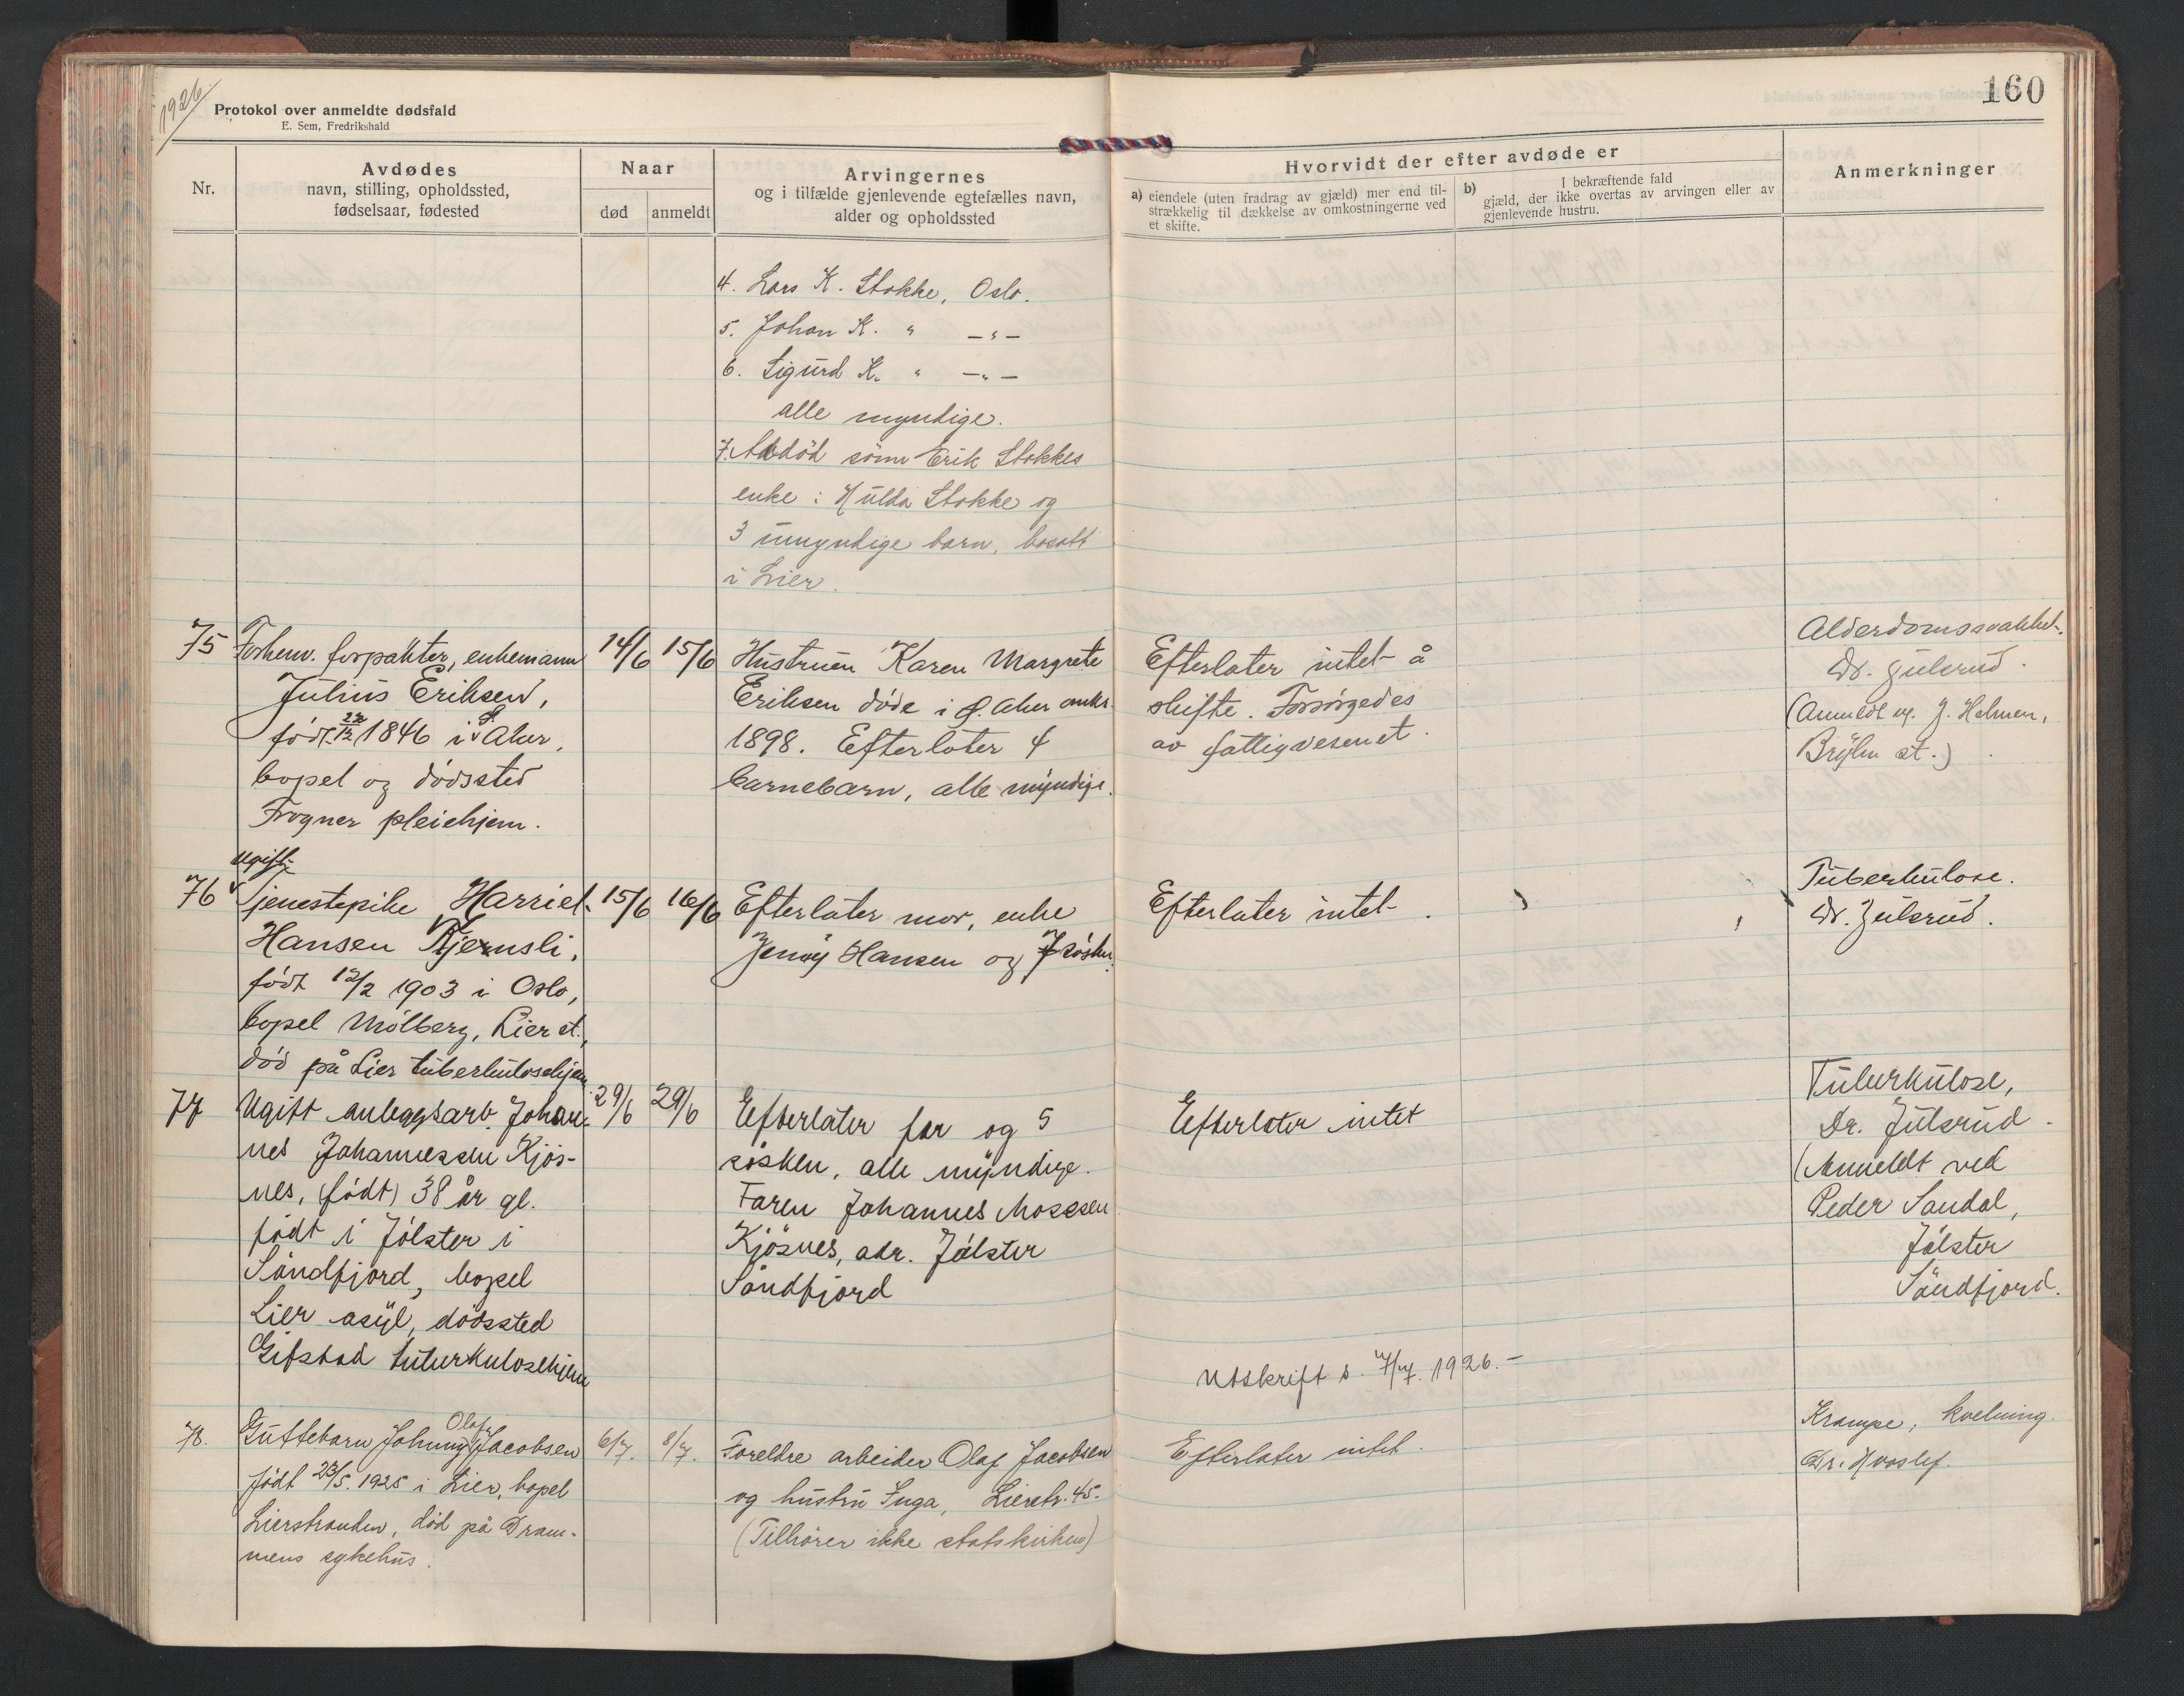 1926.
Protokol over anmeldte dødsfald
E. Sem, Fredrikshald
160
Nr.
Avdødes
navn, stilling, opholdssted,
fødselsaar, fødested
Naar
død
anmeldt
Arvingernes
og i tilfælde gjenlevende egtefælles navn,
alder og opholdssted
Hvorvidt der efter avdøde er
a) eiendele (uten fradrag av gjæld) mer end til-
strækkelig til dækkelse av omkostningerne ved
et skifte.
b) I bekræftende fald
gjæld, der ikke overtas av arvingen eller av
gjenlevende hustru.
Anmerkninger
4. Lars K. Stokke, Oslo.
5. Johan K. " —"—
6. Sigurd K. " —"—
alle myndige.
7. Avdöd sönn Erik Stokkes
enke: Hulda Stokke og
3 umyndige barn, bosatt
i Lier.
75
Forhenv. forpakter, enkemann
Julius Eriksen,
født 1846 i Aker,
bopel og dødssted
Frogner pleiehjem.
14/6
15/6
Hustruen Karen Margrete
Eriksen døde i Ø. Aker
1898. Efterlater 4
barnebarn, alle myndige.
Efterlater intet å
skifte. Forsørgedes
av fattigvesenet.
Alderdomssvakhet.
Dr. Julsrud.
(Anmeldt v. J. Helmen,
st.)
76
ugift
Tjenestepike Harriet
Hansen Kjernsli,
født 12/2 1903 i Oslo,
bopel Mölberg, Lier st.,
död på Lier tuberkulosehjem
15/6
16/6
Efterlater mor, enke
Jenny Hansen og 7 søsken.
Efterlater intet.
Tuberkulose.
Dr. Julsrud.
77
Ugift anleggsarb. Johan-
nes Johannessen Kjös-
nes, (født) 38 år gl.
født i Jölster i
Söndfjord, bopel
Lier asyl, dödssted
Gifstad tuberkulosehjem
29/6
29/6
Efterlater far og 5
søsken, alle myndige.
Faren Johannes Mossen
Kjösnes, adr. Jölster
Söndfjord
Efterlater intet
Tuberkulose,
Dr. Julsrud.
(Anmeldt ved
Peder Sandal,
Jölster
Söndfjord.
Utskrift s. 7/7. 1926.-
78.
Guttebarn Johnny Olaf Jacobsen
født 23/5. 1925 i Lier, bopel
Lierstranden, död på Dram-
mens sykehus.
6/7.
8/7.
Foreldre arbeider Olaf Jacobsen
og hustru Inga, Lierstr. 45.
(Tilhörer ikke statskirken)
Efterlater intet.
Krampe, kvelning.
Dr. Hvoslef.